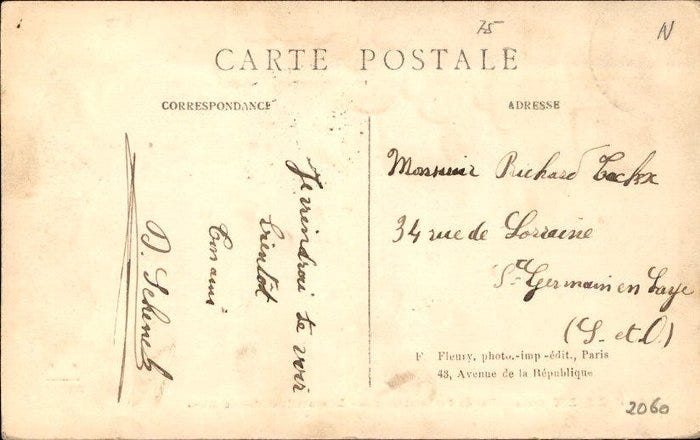 75
N
CARTE POSTALE
CORRESPONDANCE
ADRESSE
Je viendrai te voir
bientôt
Ton ami
D. Schenck
Monsieur Richard
34 rue de Lorraine
St Germain en Laye
(S. et O)
F Fleury, phot.-imp-édit., Paris
43, Avenue de la République
2060